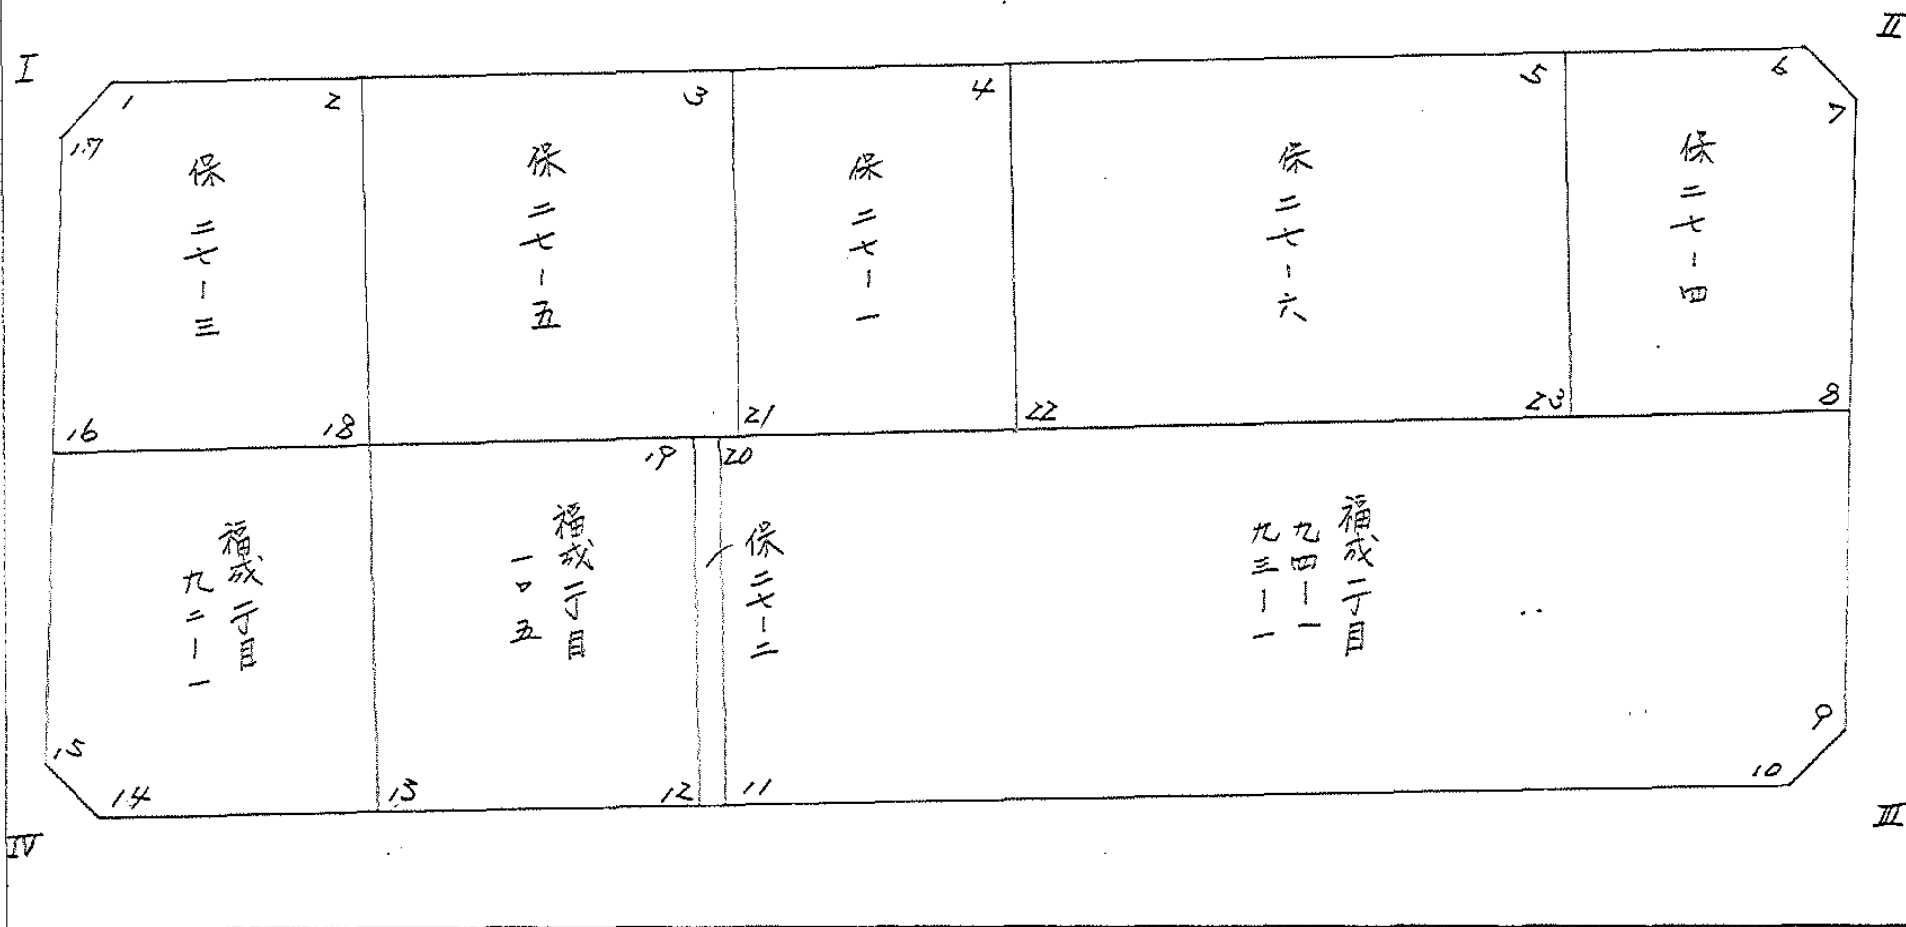 I
II
1
2
3
4
5
6
7
17
保二七-三
保二七-五
保二七-一
保二七-六
保二七-四
16
18
21
22
23
8
19
20
福成二丁目
九二-一
福成二丁目
一〇五
保二七-二
福成二丁目
九四-一
九三-一
15
14
13
12
11
10
9
IV
III